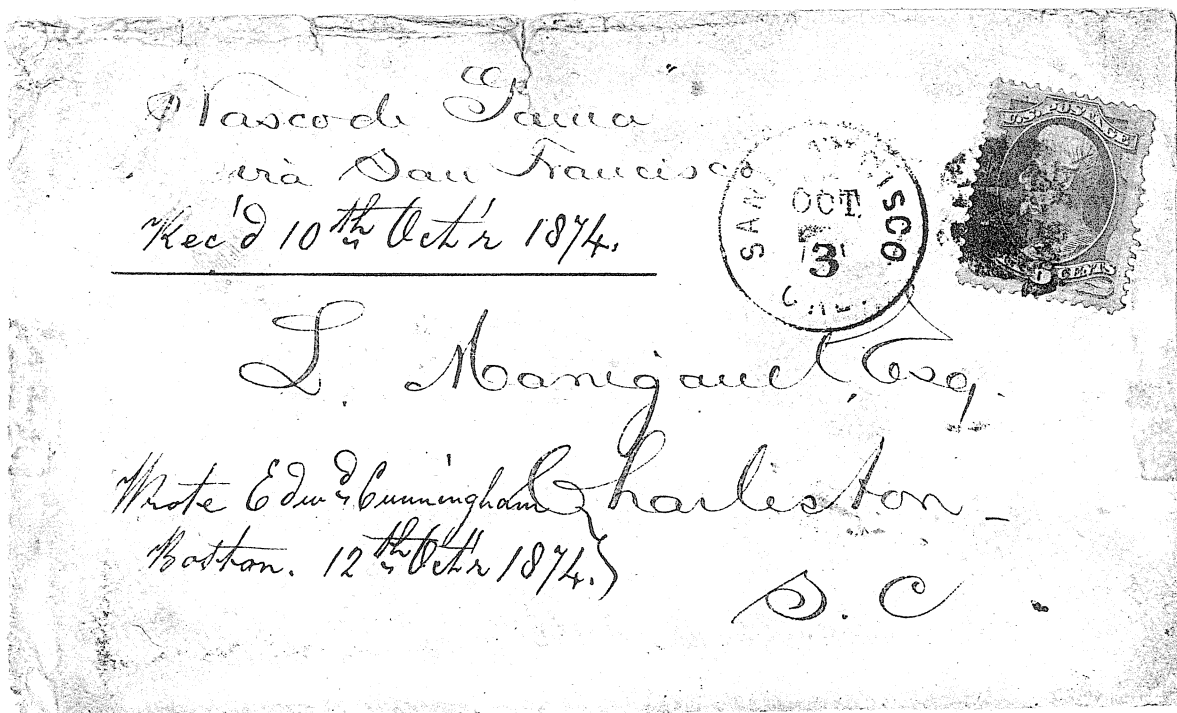 Vasco de Gama
via San Francisco
Rec'd 10th Oct'r 1874.
SAN FRANCISCO
OCT
3
CAL
U.S. POSTAGE
CENTS
L. Manigault, Esq.
Charleston -
S. C.
Wrote Edwd Cunningham
Boston. 12th Oct'r 1874.